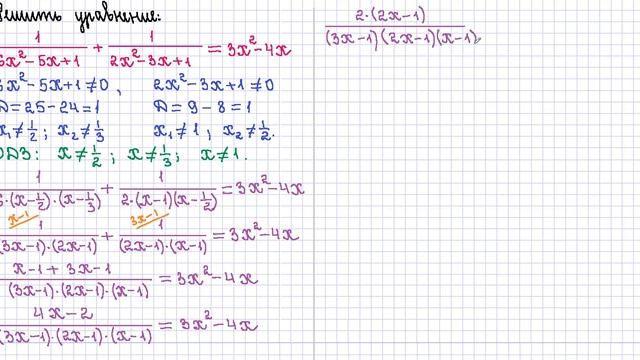 ешить уравнение:
1/(6x²-5x+1) + 1/(2x²-3x+1) = 3x²-4x
x²-5x+1≠0, 2x²-3x+1≠0
D=25-24=1 D=9-8=1
x₁≠1/2; x₂≠1/3 x₁≠1; x₂≠1/2.
ОДЗ: x≠1/2; x≠1/3; x≠1.
1/(6·(x-1/2)·(x-1/3)) + 1/(2·(x-1)(x-1/2)) = 3x²-4x
x-1 3x-1
1/((3x-1)·(2x-1)) + 1/((2x-1)·(x-1)) = 3x²-4x
(x-1+3x-1)/((3x-1)·(2x-1)·(x-1)) = 3x²-4x
(4x-2)/((3x-1)·(2x-1)·(x-1)) = 3x²-4x
2·(2x-1)/((3x-1)(2x-1)(x-1))